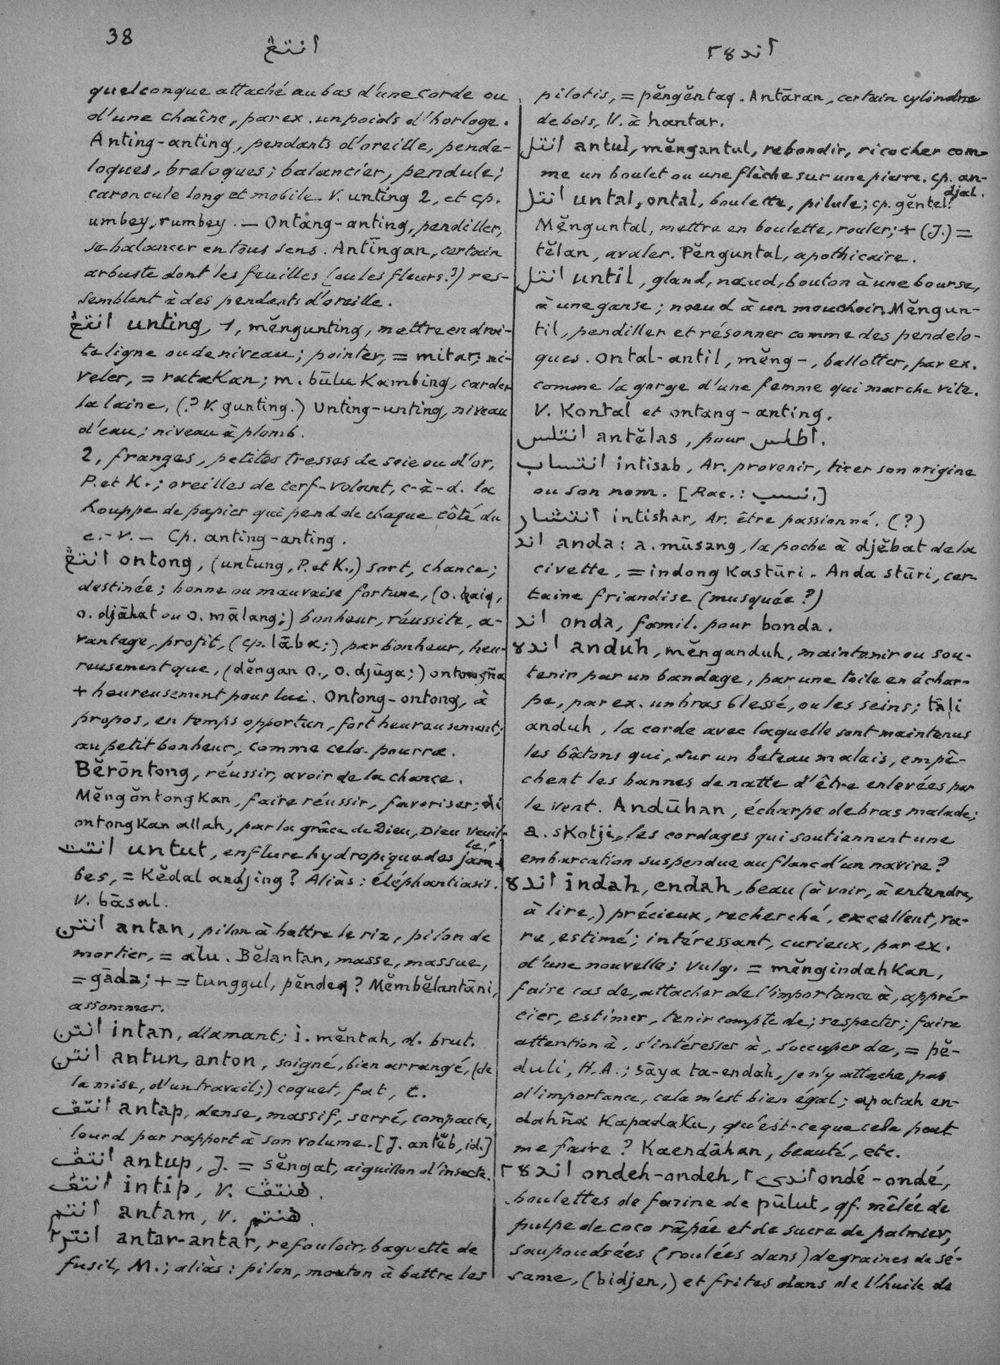 38
انتڠ
اند٨٢
quelconque attaché au bas d'une corde ou
d'une chaîne, par ex. un poids d'horloge.
Anting-anting, pendants d'oreille, pende-
loques, breloques; balancier, pendule;
caroncule long et mobile. V. unting 2, et cp.
umbey, rumbey. — Ontang-anting, pendiller,
se balancer en tous sens. Antingan, certain
arbuste dont les feuilles (ou les fleurs?) res-
semblent à des pendants d'oreille.
انتڠ unting, 1, mĕngunting, mettre en droi-
te ligne ou de niveau; pointer, = mitar; ni-
veler, = ratakan; m. būlu kambing, carder
la laine, (? V. gunting.) Unting-unting, niveau
d'eau; niveau à plomb.
2, franges, petites tresses de soie ou d'or,
P. et K.; oreilles de cerf-volant, c-à-d. la
houppe de papier qui pend de chaque côté du
c.-v. — Cp. anting-anting.
انتڠ ontong, (untung, P. et K.,) sort, chance;
destinée; bonne ou mauvaise fortune, (o. baiq,
o. djāhat ou o. mālang;) bonheur, réussite, a-
vantage, profit, (cp. lāba;) par bonheur, heu-
reusement que, (dĕngan o., o. djūga;) ontongña
+ heureusement pour lui. Ontong-ontong, à
propos, en temps opportun, fort heureusement;
au petit bonheur, comme cela pourra.
Bĕrōntong, réussir, avoir de la chance.
Mĕngŏntongkan, faire réussir, favoriser; di
ontongkan allah, par la grâce de Dieu, Dieu veuil-
le!
انتت untut, enflure hydropique des jam-
bes, = Kĕdal andjing? Aliàs: éléphantiasis.
V. bāsal.
انتن antan, pilon à battre le riz, pilon de
mortier, = alu. Bĕlantan, masse, massue,
= gāda; + = tunggul, pĕndeq? Mĕmbĕlantāni,
assommer.
انتن intan, diamant; i. mĕntah, d. brut.
انتن antun, anton, soigné, bien arrangé, (de
la mise, d'un travail;) coquet, fat, C.
انتڤ antap, dense, massif, serré, compacte,
lourd par rapport à son volume. [J. antĕb, id.]
انتڤ antup, J. = sĕngat, aiguillon d'insecte.
انتڤ intip, V. هنتڤ.
انتم antam, V. هنتم.
انتر٢ antar-antar, refouloir, baguette de
fusil, M.; aliàs: pilon, mouton à battre les
pilotis, = pĕngĕntaq. Antāran, certain cylindre
de bois, V. à hantar.
انتل antul, mĕngantul, rebondir, ricocher com-
me un boulet ou une flèche sur une pierre. cp. an-
djal.
انتل untal, ontal, boulette, pilule; cp. gĕntel!
Mĕnguntal, mettre en boulette, rouler; + (J.) =
tĕlan, avaler. Pĕnguntal, apothicaire.
انتل until, gland, nœud, bouton à une bourse,
à une ganse; noeud à un mouchoir. Mĕngun-
til, pendiller et résonner comme des pendelo-
ques. Ontal-antil, mĕng-, ballotter, par ex.
comme la gorge d'une femme qui marche vite.
V. Kontal et ontang-anting.
انتلس antĕlas, pour اطلس.
انتساب intisab, Ar. provenir, tirer son origine
ou son nom. [Rac.: نسب.]
انتشار intishar, Ar. être passionné. (?)
اند anda: a. mūsang, la poche à djĕbat de la
civette, = indong kastūri. Anda stūri, cer-
taine friandise (musquée?)
اند onda, famil. pour bonda.
اند٨ anduh, mĕnganduh, maintenir ou sou-
tenir par un bandage, par une toile en échar-
pe, par ex. un bras blessé, ou les seins; tāli
anduh, la corde avec laquelle sont maintenus
les bâtons qui, sur un bateau malais, empê-
chent les bannes de natte d'être enlevées par
le vent. Andūhan, écharpe de bras malade;
a. skotji, les cordages qui soutiennent une
embarcation suspendue au flanc d'un navire?
اند٨ indah, endah, beau (à voir, à entendre,
à lire,) précieux, recherché, excellent, ra-
re, estimé; intéressant, curieux, par ex.
d'une nouvelle; Vulg. = mĕngindahkan,
faire cas de, attacher de l'importance à, appré-
cier, estimer, tenir compte de; respecter; faire
attention à, s'intéresser à, s'occuper de, = pĕ-
duli, H.A.; sāya ta-endah, je n'y attache pas
d'importance, cela m'est bien égal; apatah en-
dahña kapadaku, qu'est-ce que cela peut
me faire? Kaendāhan, beauté, etc.
اند٨٢ ondeh-ondeh, اندي٢ ondé-ondé,
boulettes de farine de pūlut, qf. mêlée de
pulpe de coco râpée et de sucre de palmier,
saupoudrées (roulées dans) de graines de sé-
same, (bidjen,) et frites dans de l'huile de